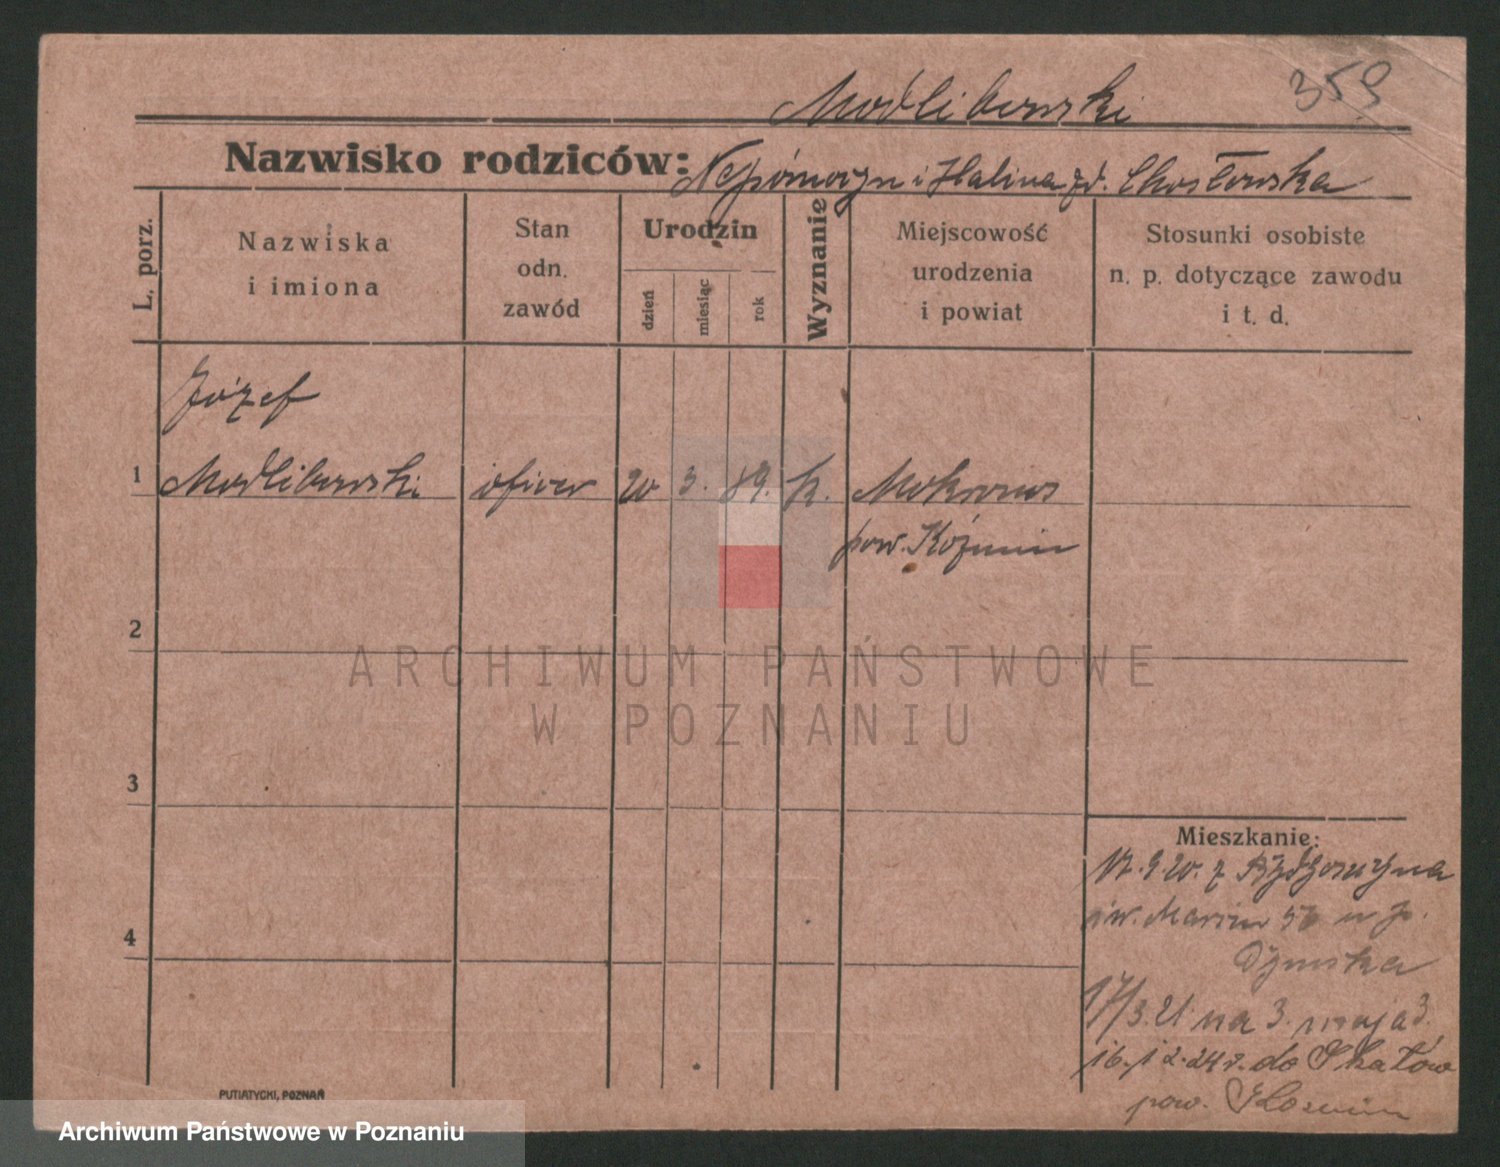 359
Modlibowski
Nazwisko rodziców: Nepomocyn i Halina zd. Chosłowska
L. porz.
Nazwiska
i imiona
Stan
odn.
zawód
Urodzin
dzień
miesiąc
rok
Wyznanie
Miejscowość
urodzenia
i powiat
Stosunki osobiste
n. p. dotyczące zawodu
i t. d.
Józef
1 Modlibowski oficer 20 3. 89. k. Mokronos
pow. Koźmin
2
ARCHIWUM PAŃSTWOWE
W POZNANIU
3
Mieszkanie:
9. 20. z Bydgoszczy na
św. Marcin u p.
4
17/3. 21 na 3. maja 3.
16. 12. 24 r. do Skałów
pow. Kosmin
PUTIATYCKI, POZNAŃ
Archiwum Państwowe w Poznaniu